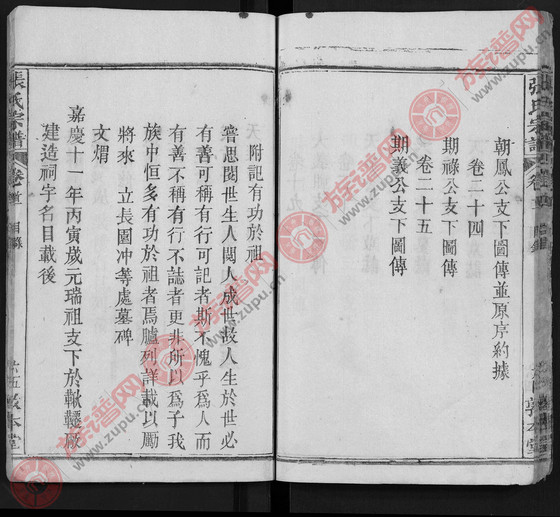 張氏宗譜
卷首
目錄
敦本堂
朝鳳公支下圖傳並原序約據
卷二十四
期祿公支下圖傳
卷二十五
期義公支下圖傳
附記有功於祖
嘗思閱世生人閱人成世故人生於世必
有善可稱有行可記者斯不愧乎為人而
有善不稱有行不誌者更非所以為子我
族中恒多有功於祖者焉臚列詳載以勵
將來 立長園冲等處墓碑
文焻
嘉慶十一年丙寅歲元瑞祖支下於轆轤廠
建造祠宇名目載後
張氏宗譜
卷首
目錄
廿五
敦本堂
族谱网
www.zupu.cn
族谱网
www.zupu.cn
族谱网
www.zupu.cn
族谱网
www.zupu.cn